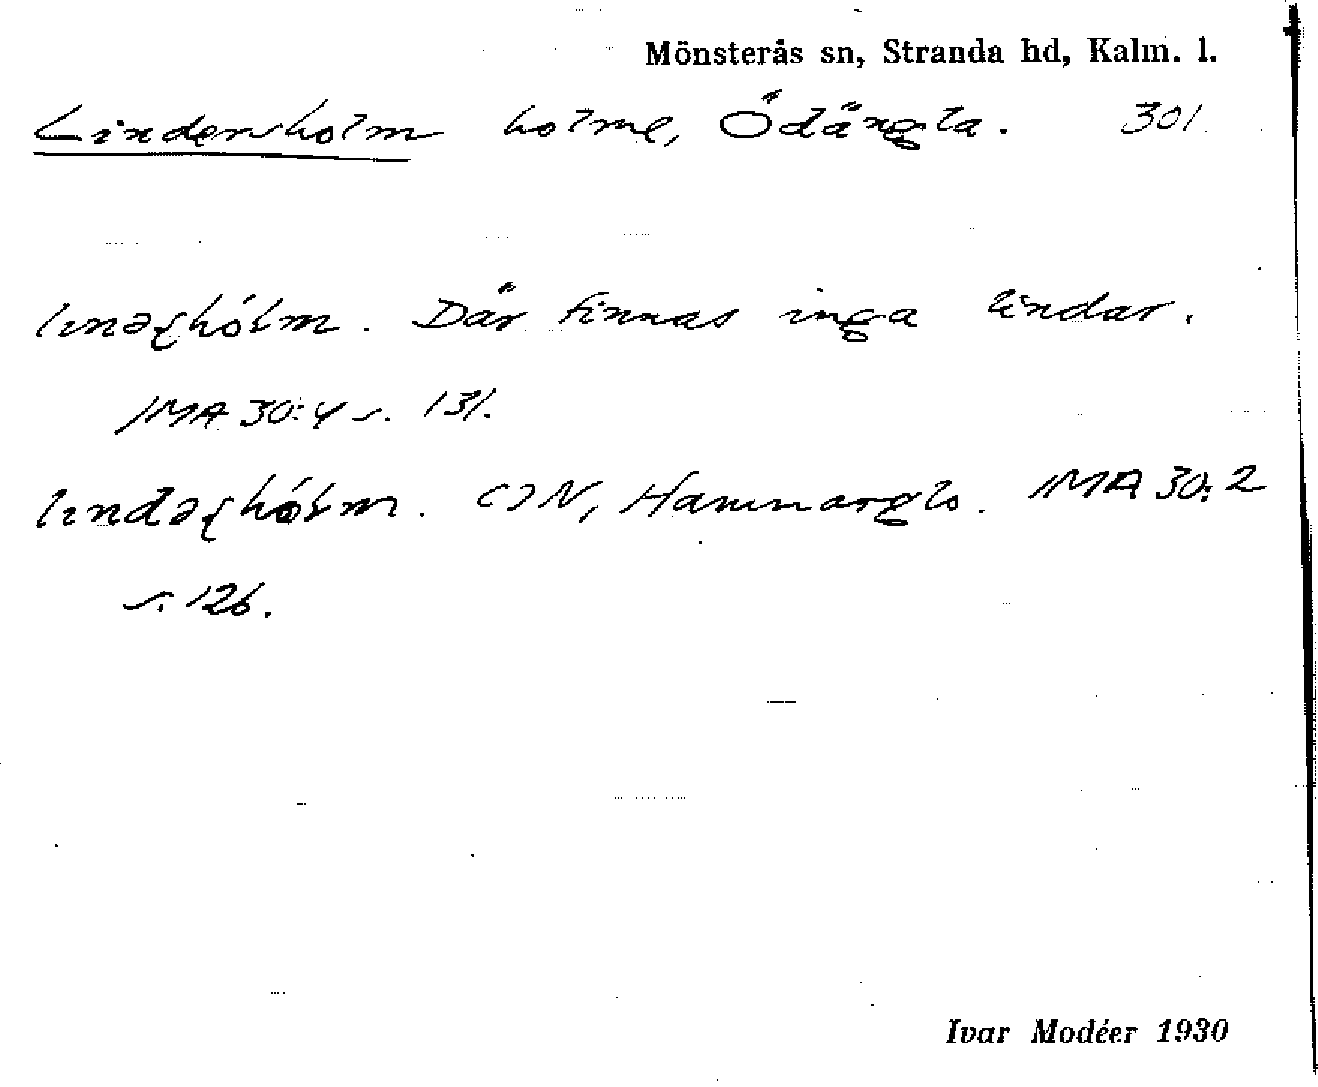 Mönsterås sn, Stranda hd, Kalm. l.
Lindersholm holme, Ödängla. 301.
lınəʂhólm. Där finnas inga lindar.
IMA 30:4 s. 131.
lındəʂhólm. CJN, Hammarglo. IMA 30:2
s. 126.
Ivar Modéer 1930